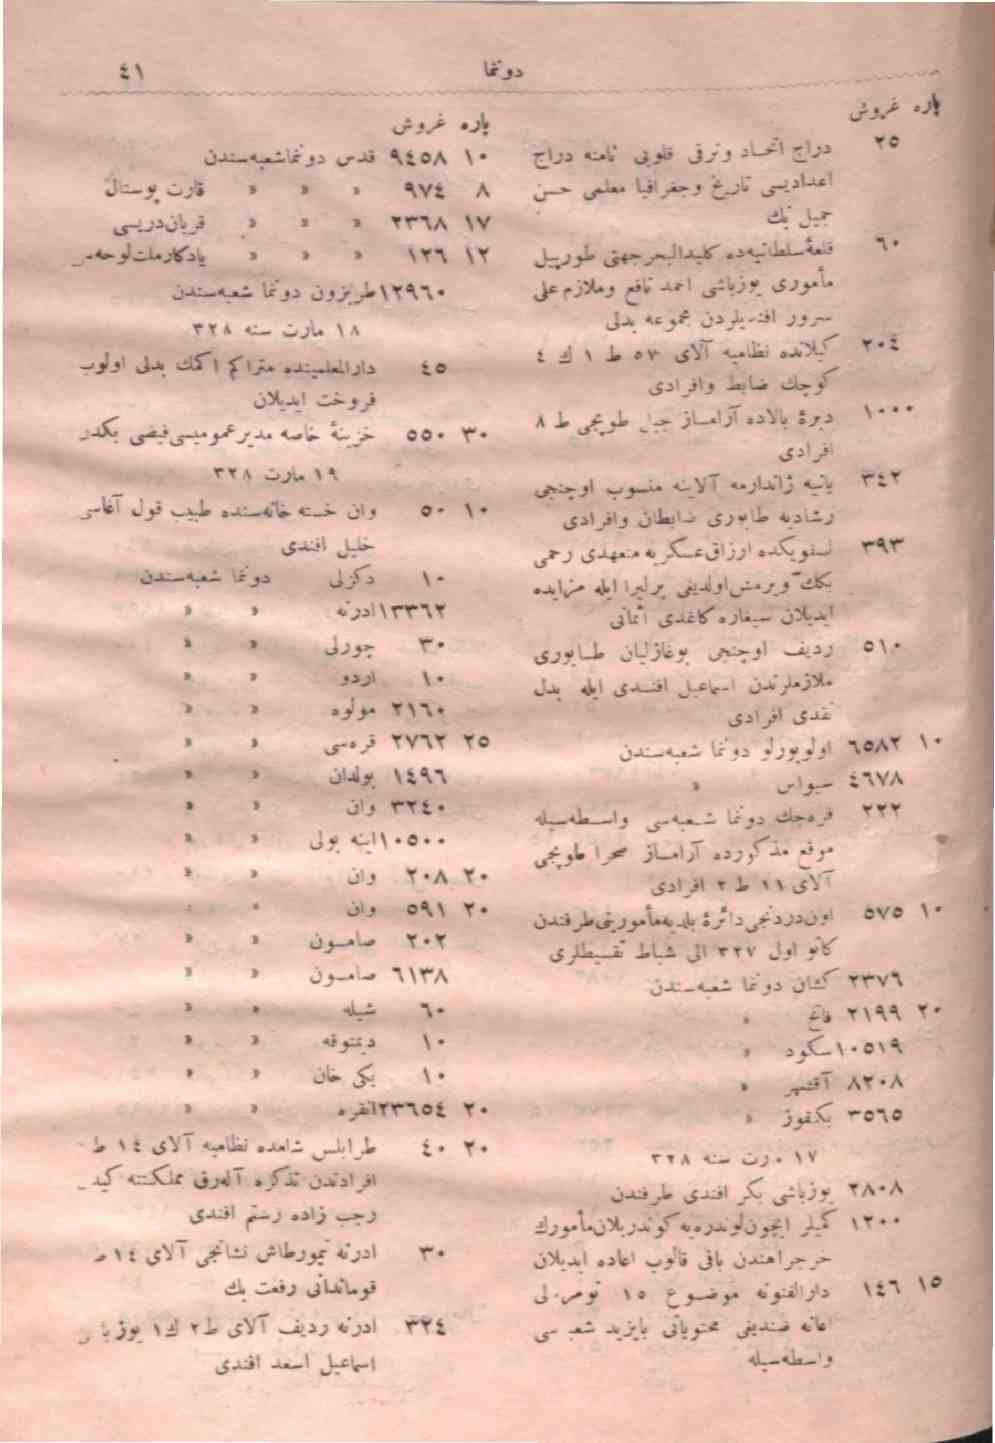 دوننما ٤١
پاره غروش
٢٥ دراج اتحاد وترقی قلوبی نامنه دراج
اعدادیسی تاریخ وجغرافیا معلمی حسن
جمیل بك
٦٠ قلعهٔ سلطانیه‌ده کلیدالبحر جهتی طورپیل
مأموری یوزباشی احمد نافع وملازم علی
سرور افندیلردن مجموعه بدلی
٢٠٤ کیلانده نظامیه آلای ٥٧ ط ١ ك ٤
کوچك ضابط وافرادی
١٠٠٠ دبرهٔ بالاده آرامساز جبل طوپجی ط ٨
افرادی
٣٤٢ یانیه ژاندارمه آلاینه منسوب اوچنجی
رشادیه طابوری ضابطان وافرادی
٣٩٣ ارزاق عسکریه متعهدی رحمی
بكك ویرمش اولدیغی بر لیرا ایله مزایده
ایدیلان سیغاره کاغدی اثمانی
٥١٠ ردیف اوچنجی بوغازلیان طابوری
ملازملرندن اسماعیل افندی ایله بدل
نقدی افرادی
١٠ ٦٥٨٢ اولوبورلو دوننما شعبه‌سندن
٤٦٧٨ سیواس »
٢٢٢ قره‌جك دوننما شعبه‌سی واسطه‌سیله
موقع مذکورده آرامساز صحرا طوپجی
آلای ١١ ط ٢ افرادی
١٠ ٥٧٥ اون‌دردنجی دائرهٔ بلدیه‌مأمورینی طرفندن
کانو اول ٣٢٧ الی شباط تقسیطلری
٢٣٧٦ کشان دوننما شعبه‌سندن
٢٠ ٢١٩٩ فاتح »
١٠٥١٩ سکود »
٨٢٠٨ آقشهر »
٣٥٦٥ بکفوز »
١٧ مارت سنه ٣٢٨
٢٨٠٨ یوزباشی بکر افندی طرفندن
١٢٠٠ کمیلر ایچون لوندره‌یه کوندریلان مأمورك
خرجراهندن باقی قالوب اعاده ایدیلان
١٥ ١٤٦ دارالفنونه موضوع ١٥ نومرولی
اعانه صندیغی محتویاتی بایزید شعبه‌سی
واسطه‌سیله
پاره غروش
١٠ ٩٤٥٨ قدس دوننما شعبه‌سندن
٨ ٩٧٤ » » » قارت پوستال
١٧ ٢٣٦٨ » » » قربان دریسی
١٢ ١٢٦ » » » یادکار ملت لوحه‌سی
١٢٩٦٠ طربزون دوننما شعبه‌سندن
١٨ مارت سنه ٣٢٨
٤٥ دارالمعلمینده متراکم اکمك بدلی اولوب
فروخت ایدیلان
٣٠ ٥٥٠ خزینهٔ خاصه مدیر عمومیسی فیضی بکدن
١٩ مارت ٣٢٨
١٠ ٥٠ وان خسته خانه‌سنده طبیب قول آغاسی
خلیل افندی
١٠ دکزلی دوننما شعبه‌سندن
١٣٣٦٢ ادرنه » »
٣٠ چورلی » »
١٠ اردو » »
٢١٦٠ مولوه » »
٢٥ ٢٧٦٢ قره‌سی » »
١٤٩٦ بولدان » »
٣٢٤٠ وان » »
١٠٥٠٠ اینه بولی » »
٢٠ ٢٠٨ وان » »
٢٠ ٥٩١ وان » »
٢٠٢ صامسون » »
٦١٣٨ صامسون » »
٦٠ شیله » »
١٠ دیمتوقه » »
١٠ یکی خان » »
٢٠ ٢٣٦٥٤ انقره » »
٢٠ ٤٠ طرابلس شامده نظامیه آلای ١٤ ط
افرادندن تذکره آله‌رق مملکتنه کیدن
رجب زاده رستم افندی
٣٠ ادرنه تیمورطاش نشانجی آلای ١٤ ط
قوماندانی رفعت بك
٣٢٤ ادرنه ردیف آلای ط ٢ ك ١ یوزباشی
اسماعیل اسعد افندی